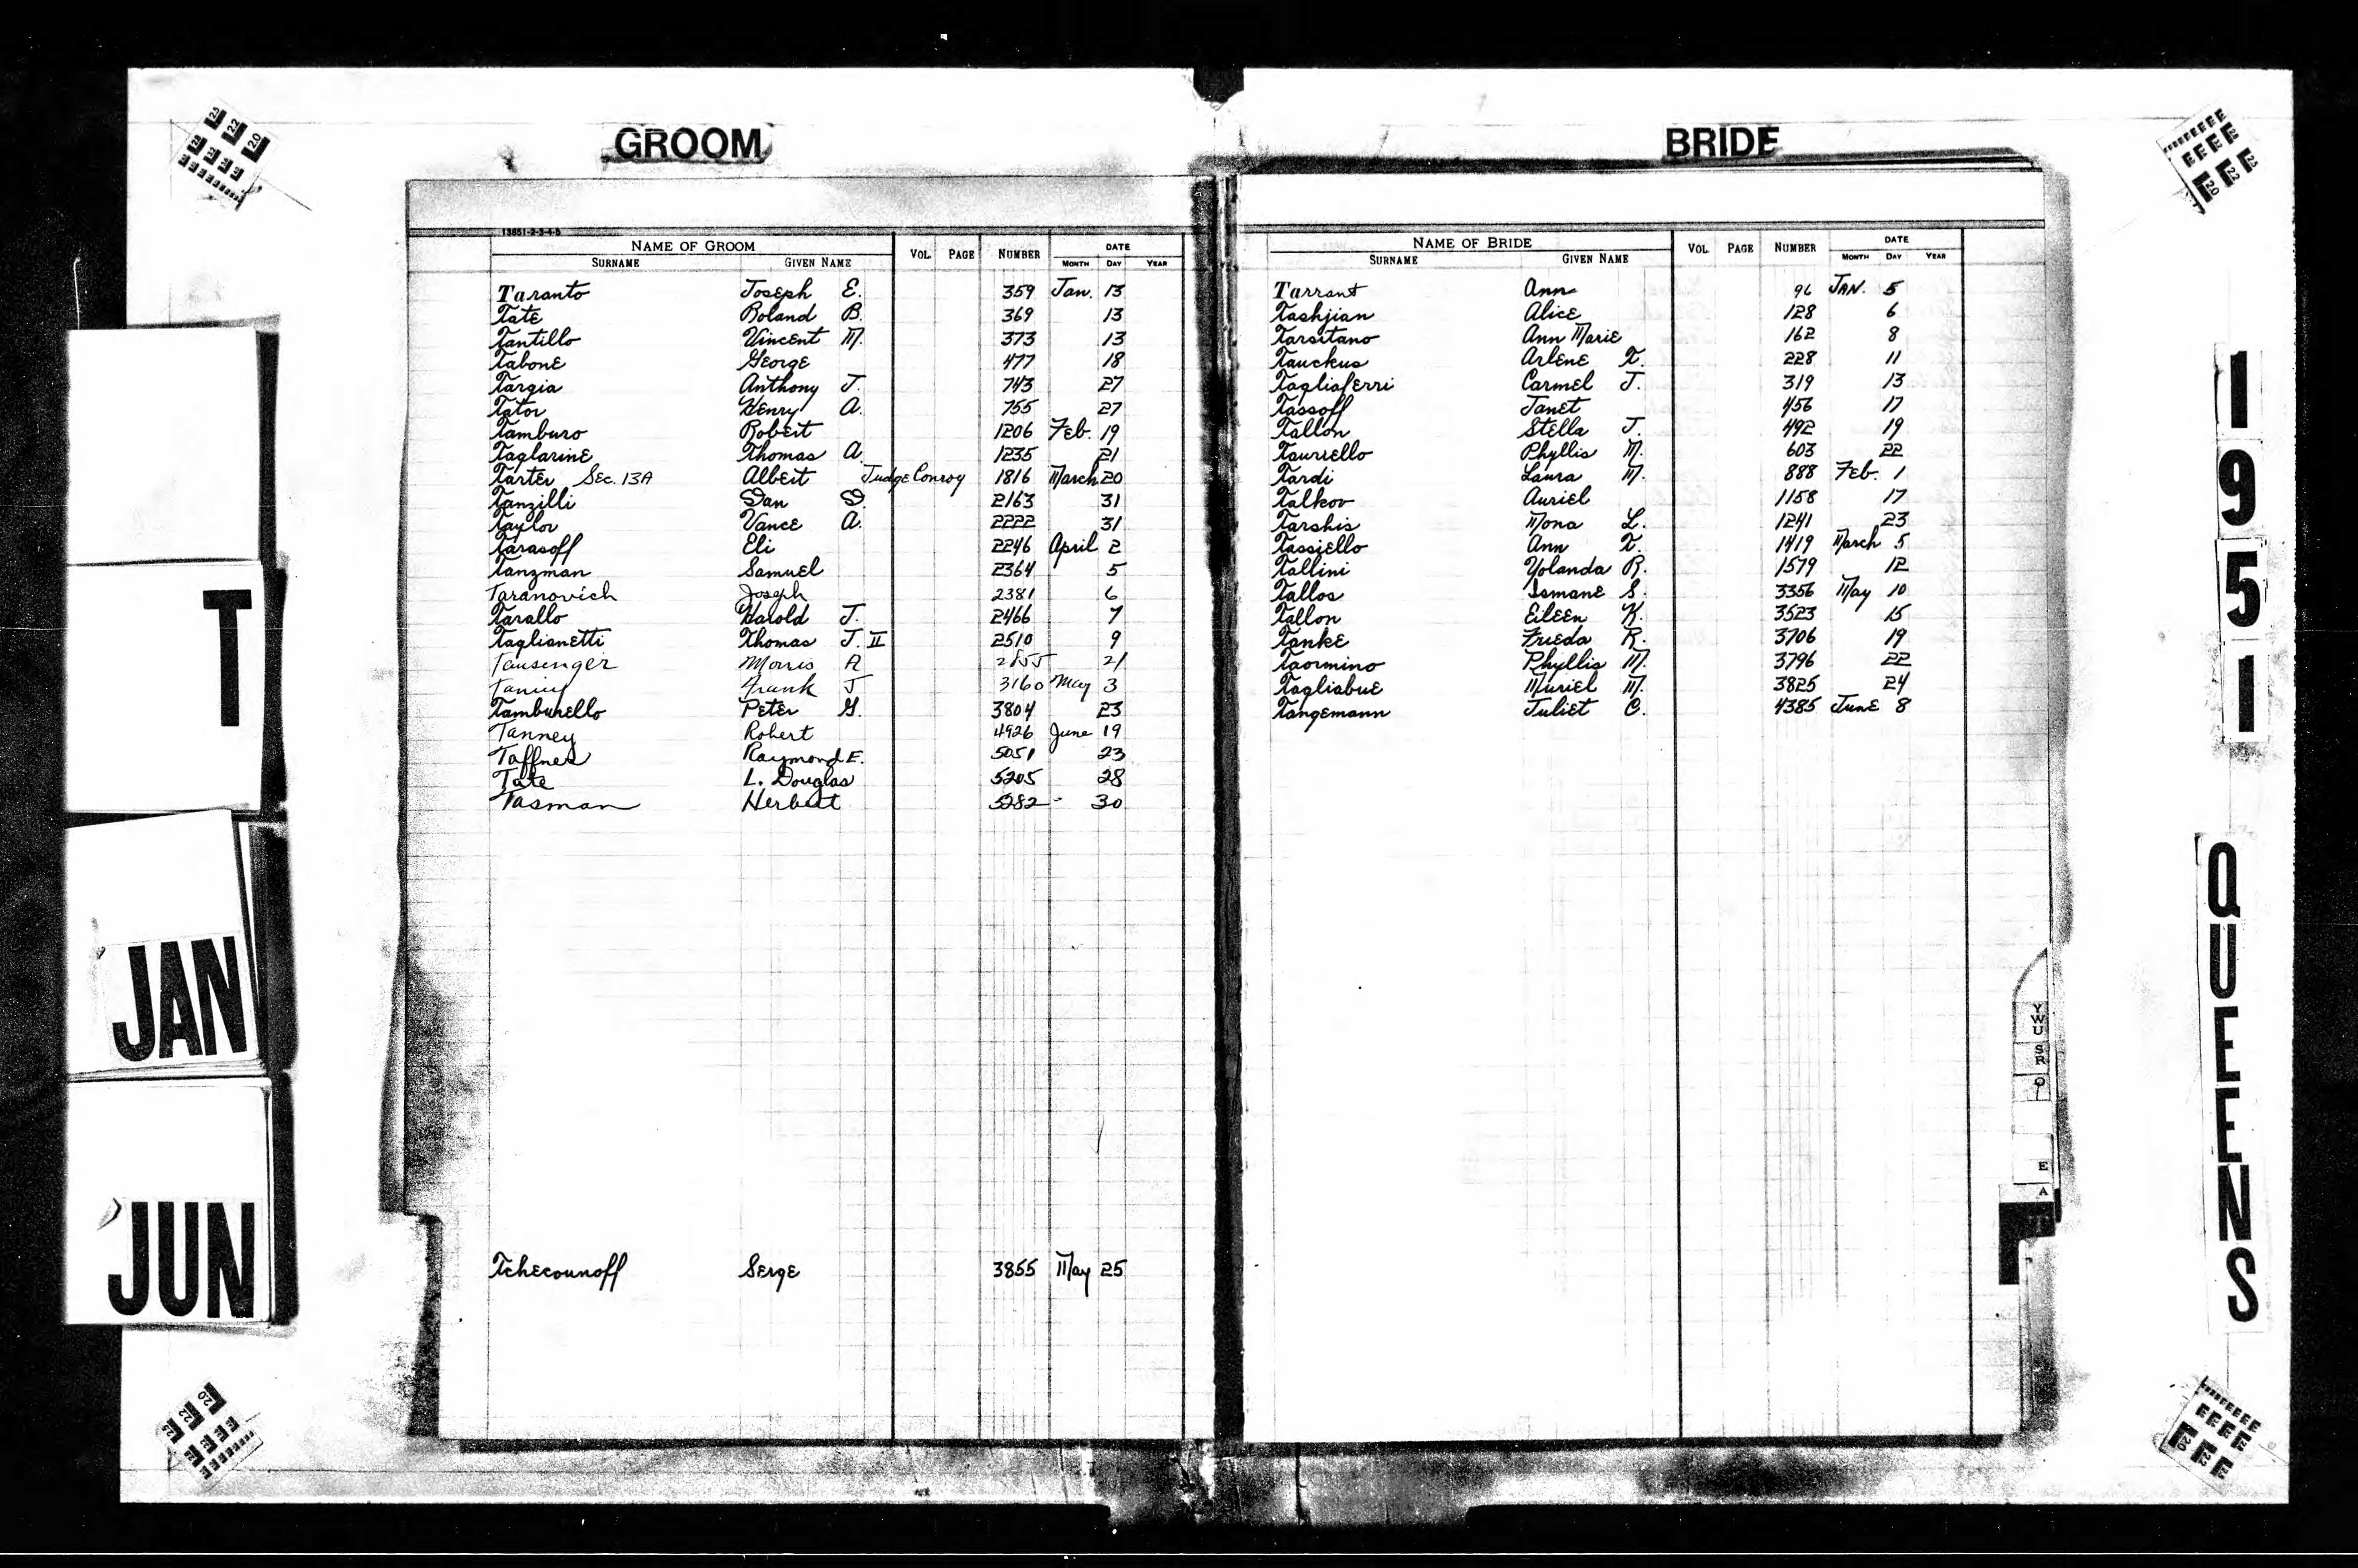 GROOM
13651-2-3-4-5
NAME OF GROOM VOL. PAGE NUMBER DATE
SURNAME GIVEN NAME MONTH DAY YEAR
Taranto Joseph E. 359 Jan. 13
Tate Roland B. 369 13
Tantillo Vincent M. 373 13
Tabone George 477 18
Targia Anthony J. 743 27
Tator Henry A. 755 27
Tamburo Robert 1206 Feb. 19
Taglarine Thomas A. 1235 21
Tarter Sec. 13A Albert Judge Conroy 1816 March 20
Tanzilli Dan D. 2163 31
Taylor Vance A. 2222 31
Tarasoff Eli 2246 April 2
Tanzman Samuel 2364 5
Taranovich Joseph 2381 6
Tarallo Harold J. 2466 7
Taglianetti Thomas J. II 2510 9
Tausenger Morris A 2855 21
Frank J 3160 May 3
Tamburello Peter G. 3804 23
Tanney Robert 4926 June 19
Taffner Raymond E. 5051 23
Tate L. Douglas 5205 28
Tasman Herbert 5282 30
Tchecounoff Serge 3855 May 25
BRIDE
NAME OF BRIDE VOL. PAGE NUMBER DATE
SURNAME GIVEN NAME MONTH DAY YEAR
Tarrant Ann 96 JAN. 5
Tashjian Alice 128 6
Tarsitano Ann Marie 162 8
Tauckus Arlene T. 228 11
Tagliaferri Carmel J. 319 13
Tassoff Janet 456 17
Tallon Stella J. 492 19
Tauriello Phyllis M. 603 22
Tardi Laura M. 888 Feb. 1
Talkov Auriel 1158 17
Tarshis Mona L. 1241 23
Tassiello Ann T. 1419 March 5
Tallini Yolanda R. 1579 12
Tallos Ismane S. 3356 May 10
Tallon Eileen K. 3523 15
Tanke Frieda R. 3706 19
Taormino Phyllis M. 3796 22
Tagliabue Muriel M. 3825 24
Tangemann Juliet C. 4385 June 8
T
JAN
JUN
1951
QUEENS